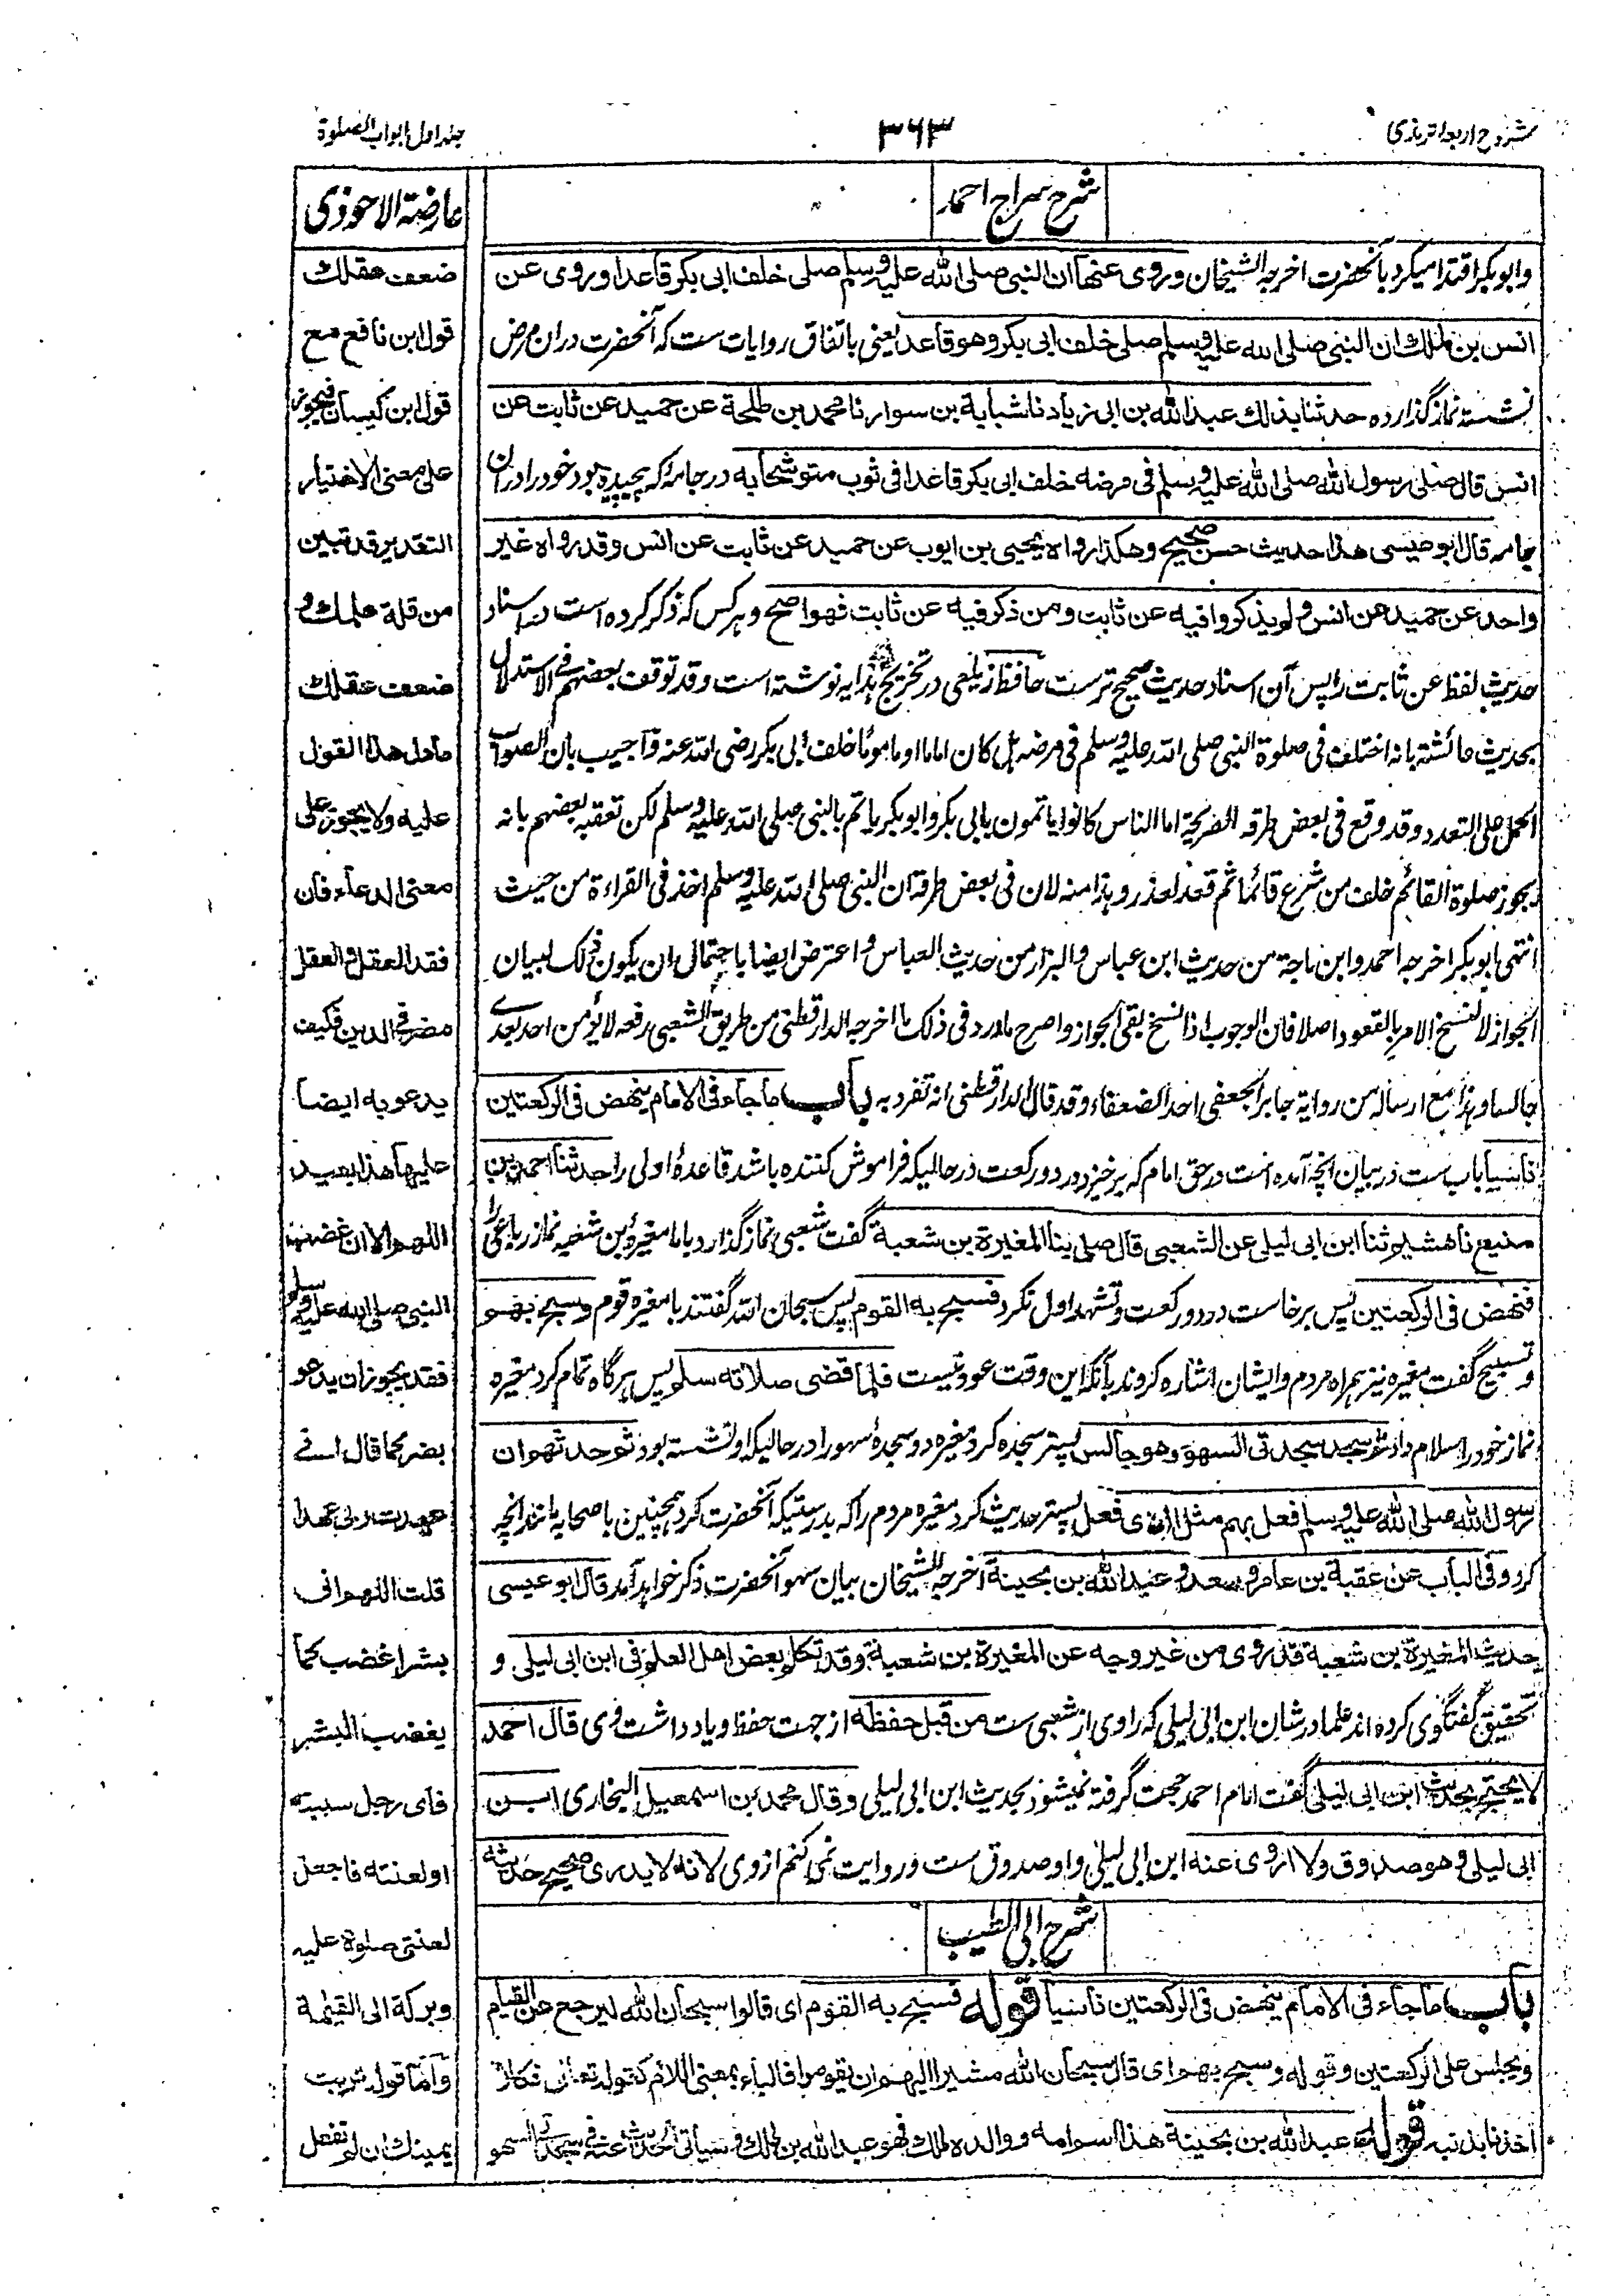 شروح اربعہ ترمذی
۳۶۳
جلد اول ابواب الصلوة
شرح سراج احمد
وابوبکر اقتدا میکرد بآنحضرت اخرجه الشیخان وروی عنها ان النبی صلی الله علیه وسلم صلی خلف ابی بکر قاعدا وروی عن
انس بن مالك ان النبی صلی الله علیه وسلم صلی خلف ابی بکر وهو قاعد یعنی باتفاق روایات ست که آنحضرت دران مرض
نشسته نماز گذارده حدثنا بذلك عبد الله بن ابی زیاد نا شبابة بن سوار نا محمد بن طلحة عن حمید عن ثابت عن
انس قال صلی رسول الله صلی الله علیه وسلم فی مرضه خلف ابی بکر قاعدا فی ثوب متوشحا به در جامهٔ که پیچیده بود خود را دران
جامه قال ابو عیسی هذا حدیث حسن صحیح وهکذا رواه یحیی بن ایوب عن حمید عن ثابت عن انس وقد رواه غیر
واحد عن حمید عن انس ولم یذکروا فیه عن ثابت ومن ذکر فیه عن ثابت فهو اصح و هر کس که ذکر کرده است در اسناد
حدیث لفظ عن ثابت را پس آن اسناد حدیث صحیح ترست حافظ زیلعی در تخریج هدایه نوشته است وقد توقف بعضهم فی الاستدلال
بحدیث عائشة بانه اختلف فی صلوة النبی صلی الله علیه وسلم فی مرضه هل کان اماما او ماموما خلف ابی بکر رضی الله عنه وآجیب بان الصواب
الحمل علی التعدد وقد وقع فی بعض طرقه الصریحة اما الناس کانوا یاتمون بابی بکر وابوبکر یاتم بالنبی صلی الله علیه وسلم لکن تعقبه بعضهم بانه
یجوز صلوة القائم خلف من شرع قائما ثم قعد لعذر وهذا منه لان فی بعض طرقه ان النبی صلی الله علیه وسلم اخذ فی القراءة من حیث
انتهی ابوبکر اخرجه احمد وابن ماجة من حدیث ابن عباس والبزار من حدیث العباس واعترض ایضا باحتمال ان یکون ذلک لبیان
الجواز لا لنسخ الامر بالقعود اصلا فان الوجوب اذا نسخ بقی الجواز واصرح ماورد فی ذلک ما اخرجه الدارقطنی من طریق الشعبی رفعه لا یؤمن احد بعدی
جالسا وهذا مع ارساله من روایة جابر الجعفی احد الضعفاء وقد قال الدارقطنی انه تفرد به باب ماجاء فی الامام ینهض فی الرکعتین
ناسیا باب ست در بیان آنچه آمده است در حق امام که برخیزد در دو رکعت در حالیکه فراموش کننده باشد قاعدهٔ اولی را حدثنا احمد بن
منیع نا هشیم ثنا ابن ابی لیلی عن الشعبی قال صلی بنا المغیرة بن شعبة گفت شعبی نماز گذارد باما مغیره بن شعبه نماز رباعی را
فنهض فی الرکعتین پس برخاست در دو رکعت وتشهد اول نکرد فسبح به القوم پس سبحان الله گفتند با مغیره قوم وسبح بهم
و تسبیح گفت مغیره نیز همراه مردم وایشان اشاره کردند بآنکه این وقت عود نیست فلما قضی صلاته سلم پس هرگاه تمام کرد مغیره
نماز خود را سلام داد ثم سجد سجدتی السهو وهو جالس پستر سجده کرد مغیره دو سجدهٔ سهو را در حالیکه او نشسته بود ثم حدثهم ان
رسول الله صلی الله علیه وسلم فعل بهم مثل الذی فعل پستر حدیث کرد مغیره مردم را که بدرستیکه آنحضرت کرد همچنین با صحابه مانند آنچه
کرد وفی الباب عن عقبة بن عامر وسعد وعبد الله بن بحینة اخرجه الشیخان بیان سهو آنحضرت ذکر خواهد آمد قال ابو عیسی
حدیث المغیرة بن شعبة قد روی من غیر وجه عن المغیرة بن شعبة وقد تکلم بعض اهل العلم فی ابن ابی لیلی و
تحقیق گفتگوی کرده اند علما در شان ابن ابی لیلی که راوی از شعبی ست من قبل حفظه از جهت حفظ و یاد داشت وی قال احمد
لا یحتج بحدیث ابن ابی لیلی گفت امام احمد حجت گرفته نمیشود بحدیث ابن ابی لیلی وقال محمد بن اسمعیل البخاری ابن
ابی لیلی وهو صدوق ولا اروی عنه ابن ابی لیلی واو صدوق ست و روایت نمی کنم از وی لانه لا یدری صحیح حدیثه
شرح ابی الطیب
باب ماجاء فی الامام ینهض فی الرکعتین ناسیا قوله فسبح به القوم ای قالوا سبحان الله لیرجع عن القیام
ویجلس علی الرکعتین وقوله وسبح بهم ای قال سبحان الله مشیرا الیهم ان یقوموا فالباء بمعنی اللام کقوله تعالی فکلا
اخذنا بذنبه قوله عبد الله بن بحینة هذا اسم امه ووالده مالك فهو عبد الله بن مالك وسیأتی حدیث عنه فی سجدتی السهو
عارضة الاحوذی
ضعف عقلك
قول ابن نافع مع
قول ابن کیسان فیجوز
علی معنی الاختیار
التقدیر قد تبین
من قلة علمك و
ضعف عقلك
مادل هذا القول
علیه ولا یجوز علی
معنی الدعاء فان
فقد العقل والعقل
مضر فی الدین فکیف
یدعو به ایضا
علیها هذا بعید
اللهم الا ان غضب
النبی صلی الله علیه وسلم
فقد یجوز ان یدعو
بضر کما قال انی
عهدت ربی عهدا
قلت اللهم انی
بشر اغضب کما
یغضب البشر
فای رجل سببته
او لعنته فاجعل
لعنتی صلوة علیه
وبرکة الی القیمة
واما قوله تربت
یمینك ان لم تفعل